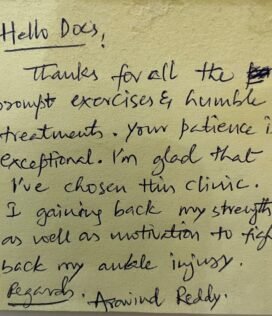 Hello Docs,
Thanks for all the
prompt exercises & humble
treatments. your patience i
exceptional. I'm glad that
I've chosen this clinic.
I gaining back my strength
as well as motivation to figh
back my ankle injury.
Regards. Aravind Reddy.